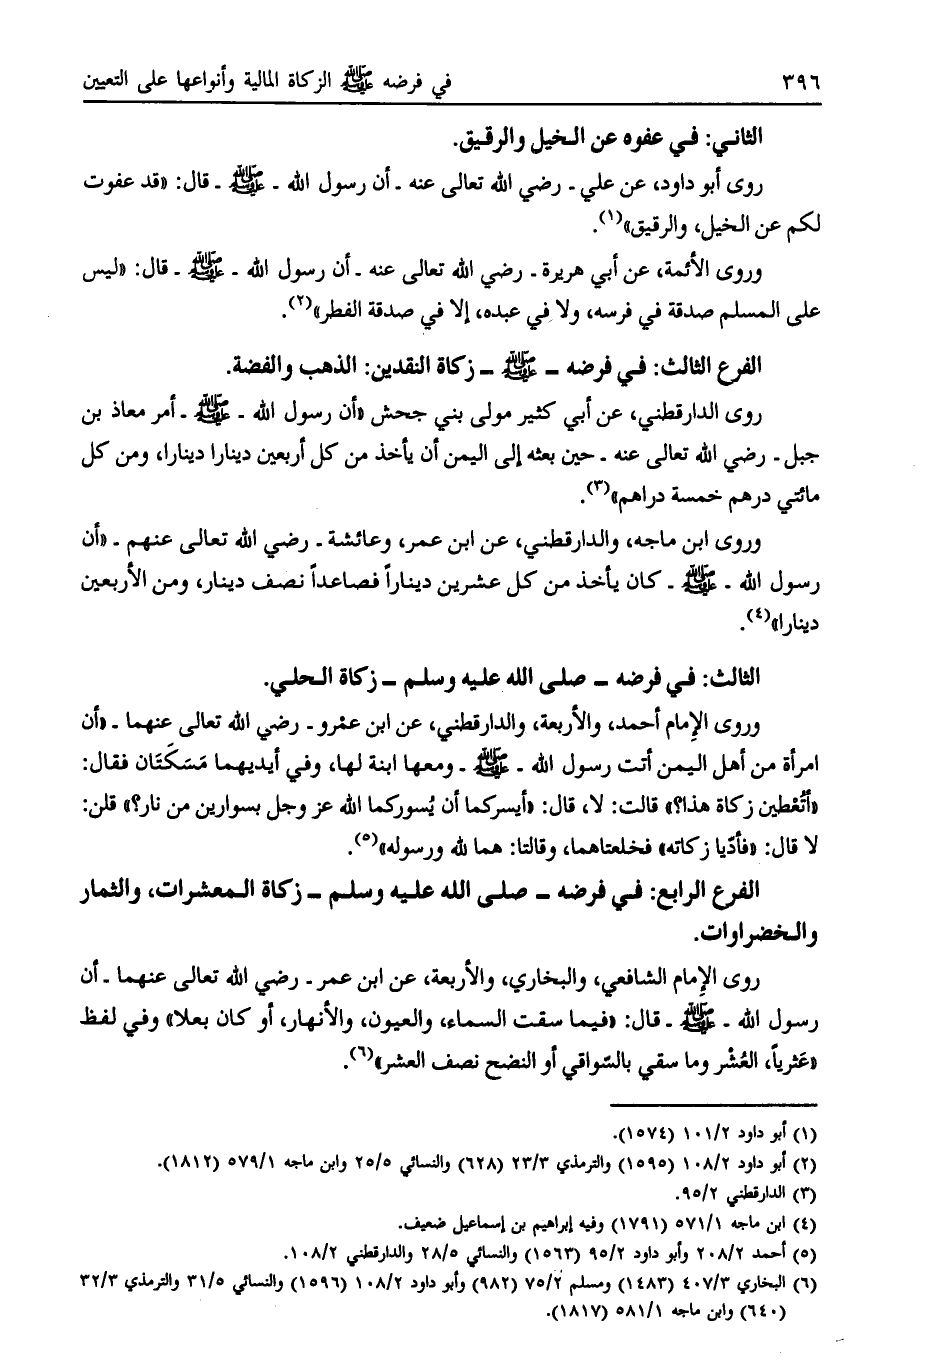 ٣٩٦ في فرضه ﷺ الزكاة المالية وأنواعها على التعيين
الثاني: في عفوه عن الخيل والرقيق.
روى أبو داود، عن علي ـ رضي الله تعالى عنه ـ أن رسول الله ـ ﷺ ـ قال: «قد عفوت
لكم عن الخيل، والرقيق»(١).
وروى الأئمة، عن أبي هريرة ـ رضي الله تعالى عنه ـ أن رسول الله ـ ﷺ ـ قال: «ليس
على المسلم صدقة في فرسه، ولا في عبده، إلا في صدقة الفطر»(٢).
الفرع الثالث: في فرضه ـ ﷺ ـ زكاة النقدين: الذهب والفضة.
روى الدارقطني، عن أبي كثير مولى بني جحش «أن رسول الله ـ ﷺ ـ أمر معاذ بن
جبل ـ رضي الله تعالى عنه ـ حين بعثه إلى اليمن أن يأخذ من كل أربعين دينارا دينارا، ومن كل
مائتي درهم خمسة دراهم»(٣).
وروى ابن ماجه، والدارقطني، عن ابن عمر، وعائشة ـ رضي الله تعالى عنهم ـ «أن
رسول الله ـ ﷺ ـ كان يأخذ من كل عشرين ديناراً فصاعداً نصف دينار، ومن الأربعين
دينارا»(٤).
الثالث: في فرضه ـ صلى الله عليه وسلم ـ زكاة الحلي.
وروى الإمام أحمد، والأربعة، والدارقطني، عن ابن عمْرو ـ رضي الله تعالى عنهما ـ «أن
امرأة من أهل اليمن أتت رسول الله ـ ﷺ ـ ومعها ابنة لها، وفي أيديهما مَسَكَتَان فقال:
«أتُعْطين زكاة هذا؟» قالت: لا، قال: «أيسركما أن يُسوركما الله عز وجل بسوارين من نار؟» قلن:
لا قال: «فأدّيا زكاته» فخلعتاهما، وقالتا: هما لله ورسوله»(٥).
الفرع الرابع: في فرضه ـ صلى الله عليه وسلم ـ زكاة المعشرات، والثمار
والخضراوات.
روى الإمام الشافعي، والبخاري، والأربعة، عن ابن عمر ـ رضي الله تعالى عنهما ـ أن
رسول الله ـ ﷺ ـ قال: «فيما سقت السماء، والعيون، والأنهار، أو كان بعلا» وفي لفظ
«عَثرياً، العُشْر وما سقي بالسّواقي أو النضح نصف العشر»(٦).
(١) أبو داود ١٠١/٢ (١٥٧٤).
(٢) أبو داود ١٠٨/٢ (١٥٩٥) والترمذي ٢٣/٣ (٦٢٨) والنسائي ٢٥/٥ وابن ماجه ٥٧٩/١ (١٨١٢).
(٣) الدارقطني ٩٥/٢.
(٤) ابن ماجه ٥٧١/١ (١٧٩١) وفيه إبراهيم بن إسماعيل ضعيف.
(٥) أحمد ٢٠٨/٢ وأبو داود ٩٥/٢ (١٥٦٣) والنسائي ٢٨/٥ والدارقطني ١٠٨/٢.
(٦) البخاري ٤٠٧/٣ (١٤٨٣) ومسلم ٧٥/٢ (٩٨٢) وأبو داود ١٠٨/٢ (١٥٩٦) والنسائي ٣١/٥ والترمذي ٣٢/٣
(٦٤٠) وابن ماجه ٥٨١/١ (١٨١٧).